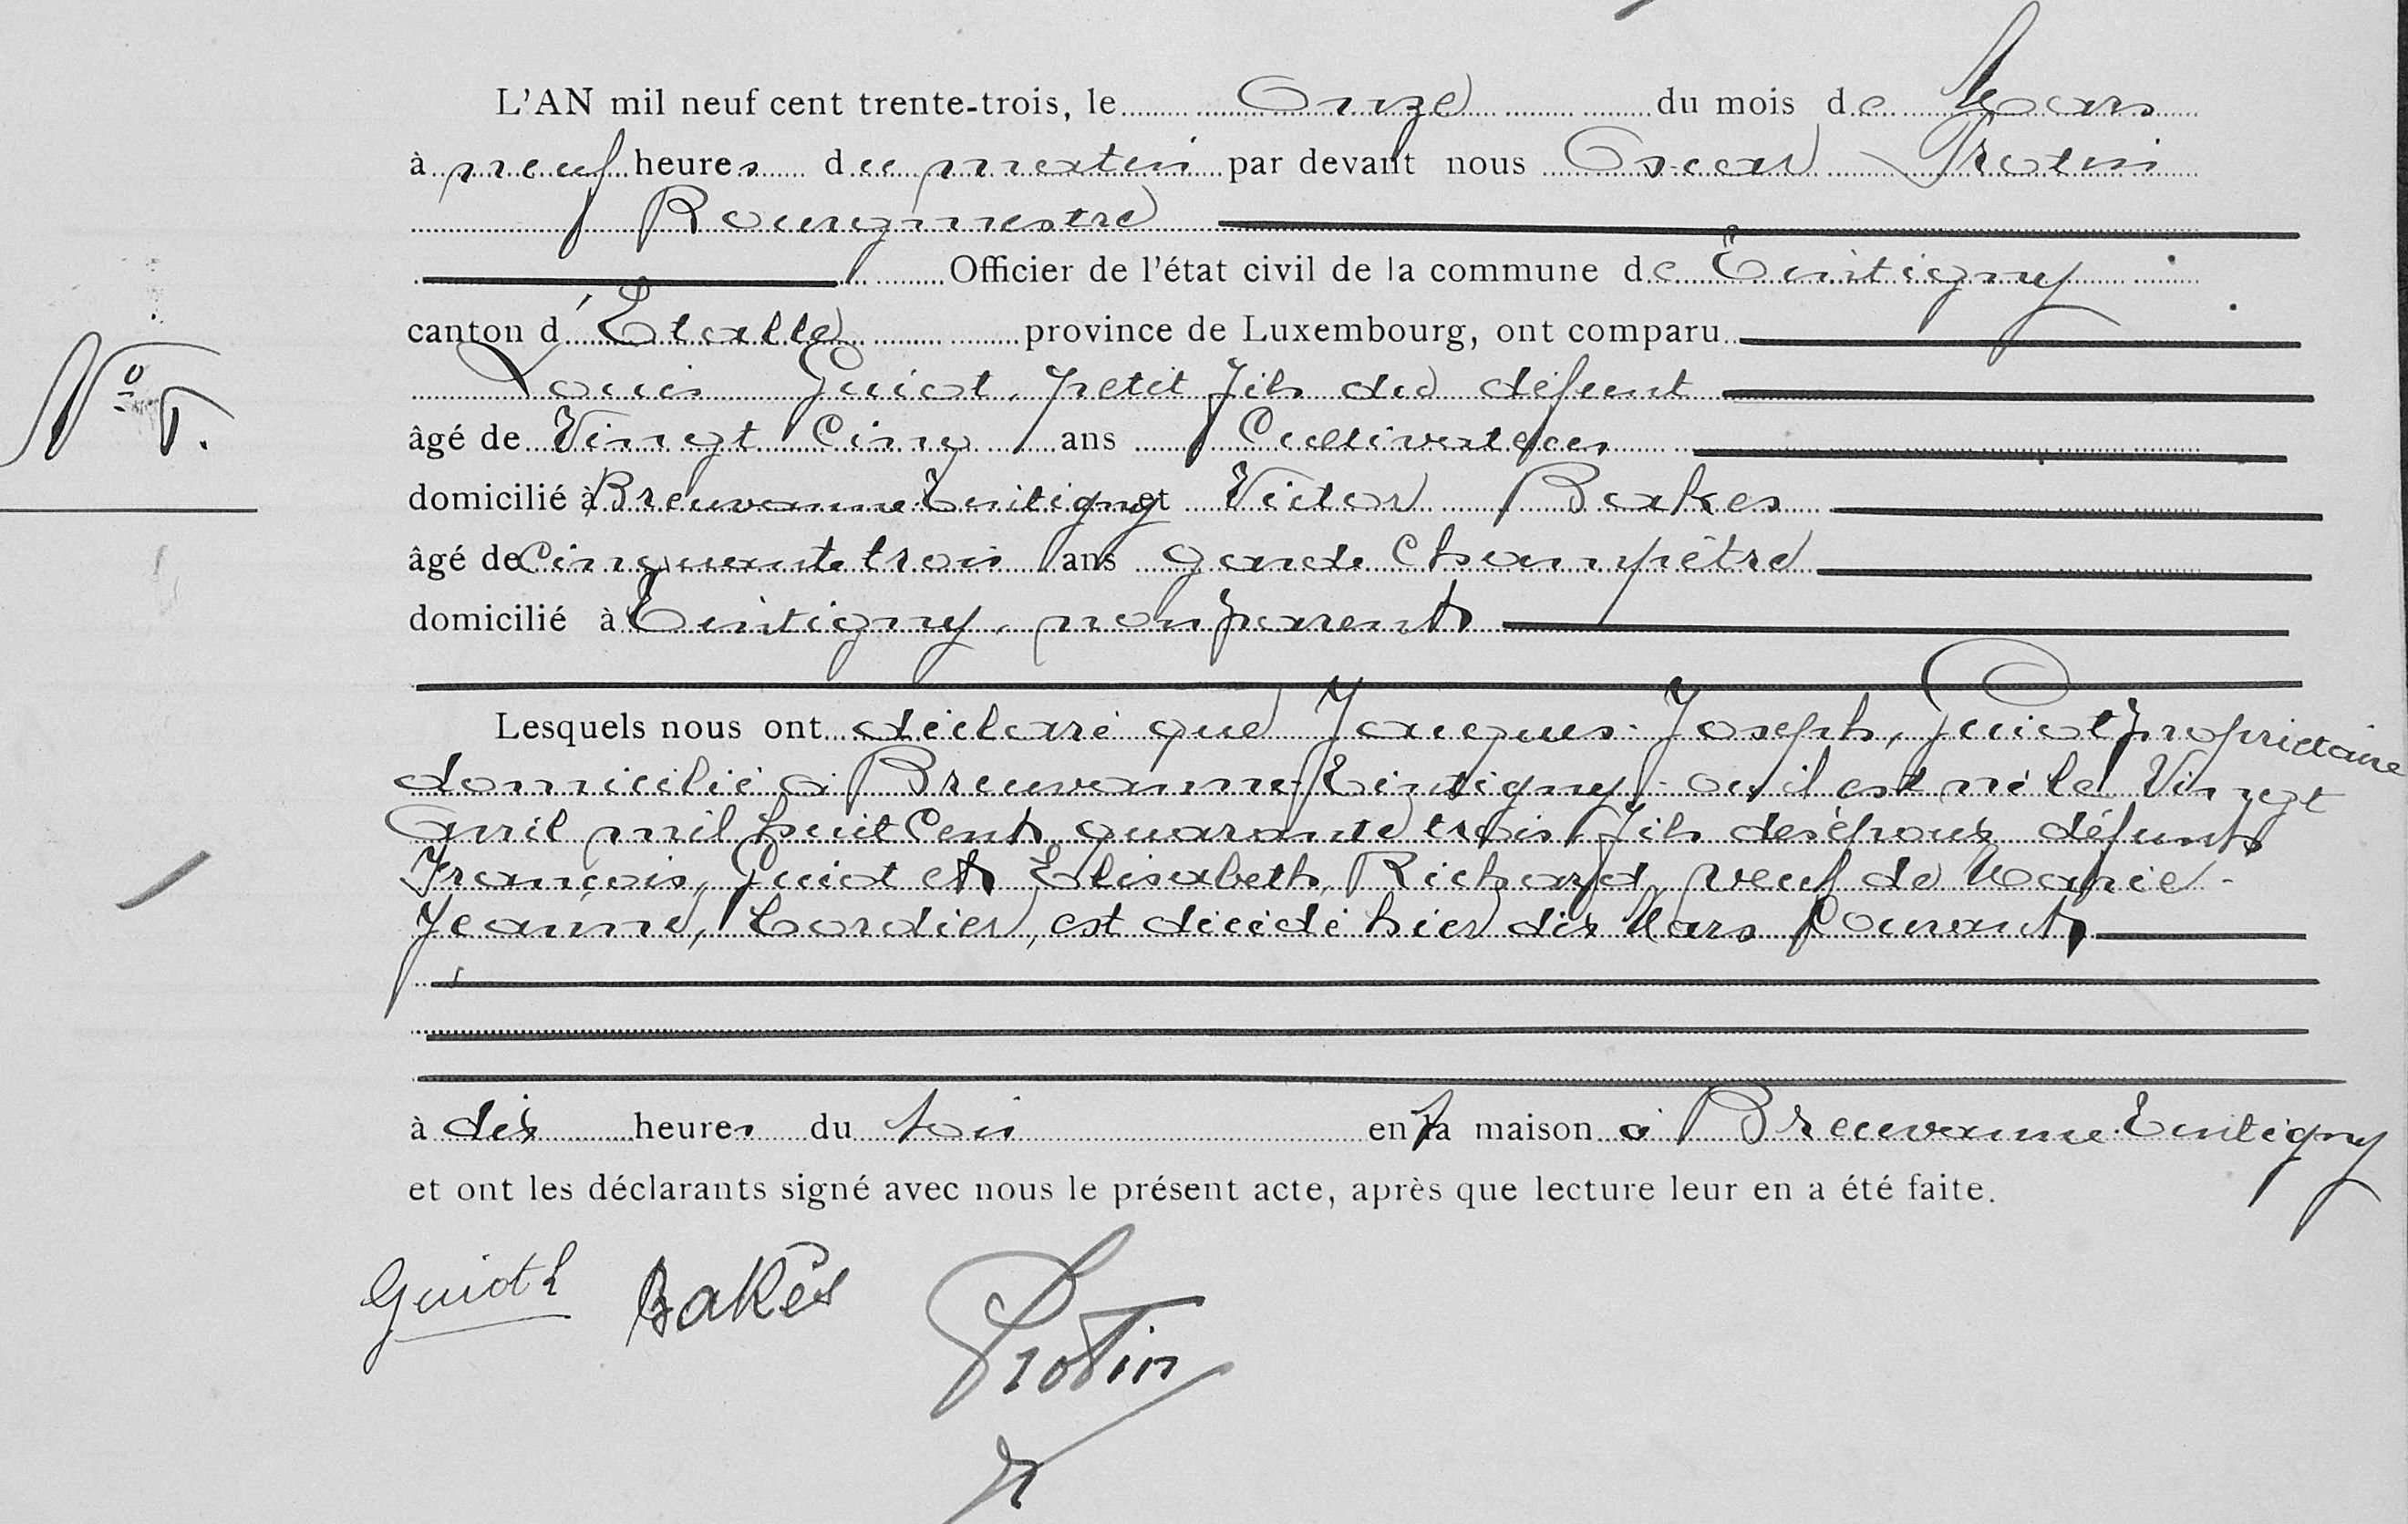 L'AN mil neuf cent trente-trois, le Onze du mois de Mars
à neuf heures du matin par devant nous Oscar Protin
Bourgmestre
Officier de l'état civil de la commune de Tintigny
canton d'Etalle province de Luxembourg, ont comparu
Louis Guiot, petit fils du défunt
N°
âgé de Vingt Cinq ans Cultivateur
domicilié à Breuvanne Tintigny et Victor Bakes
âgé de Cinquante trois ans garde Champêtre
domicilié à Tintigny, non parent
Lesquels nous ont déclaré que Jacques-Joseph, Guiot propriétaire
domicilié à Breuvanne-Tintigny - où il est né le Vingt
Avril mil huit Cent quarante trois, fils des époux défunts
François, Guiot et Elisabeth, Richard, veuf de Marie-
Jeanne, Cordier, est décédé hier dix Mars Courant,
à dix heures du soir en sa maison à Breuvanne-Tintigny
et ont les déclarants signé avec nous le présent acte, après que lecture leur en a été faite.
Guiot L Bakès Protin